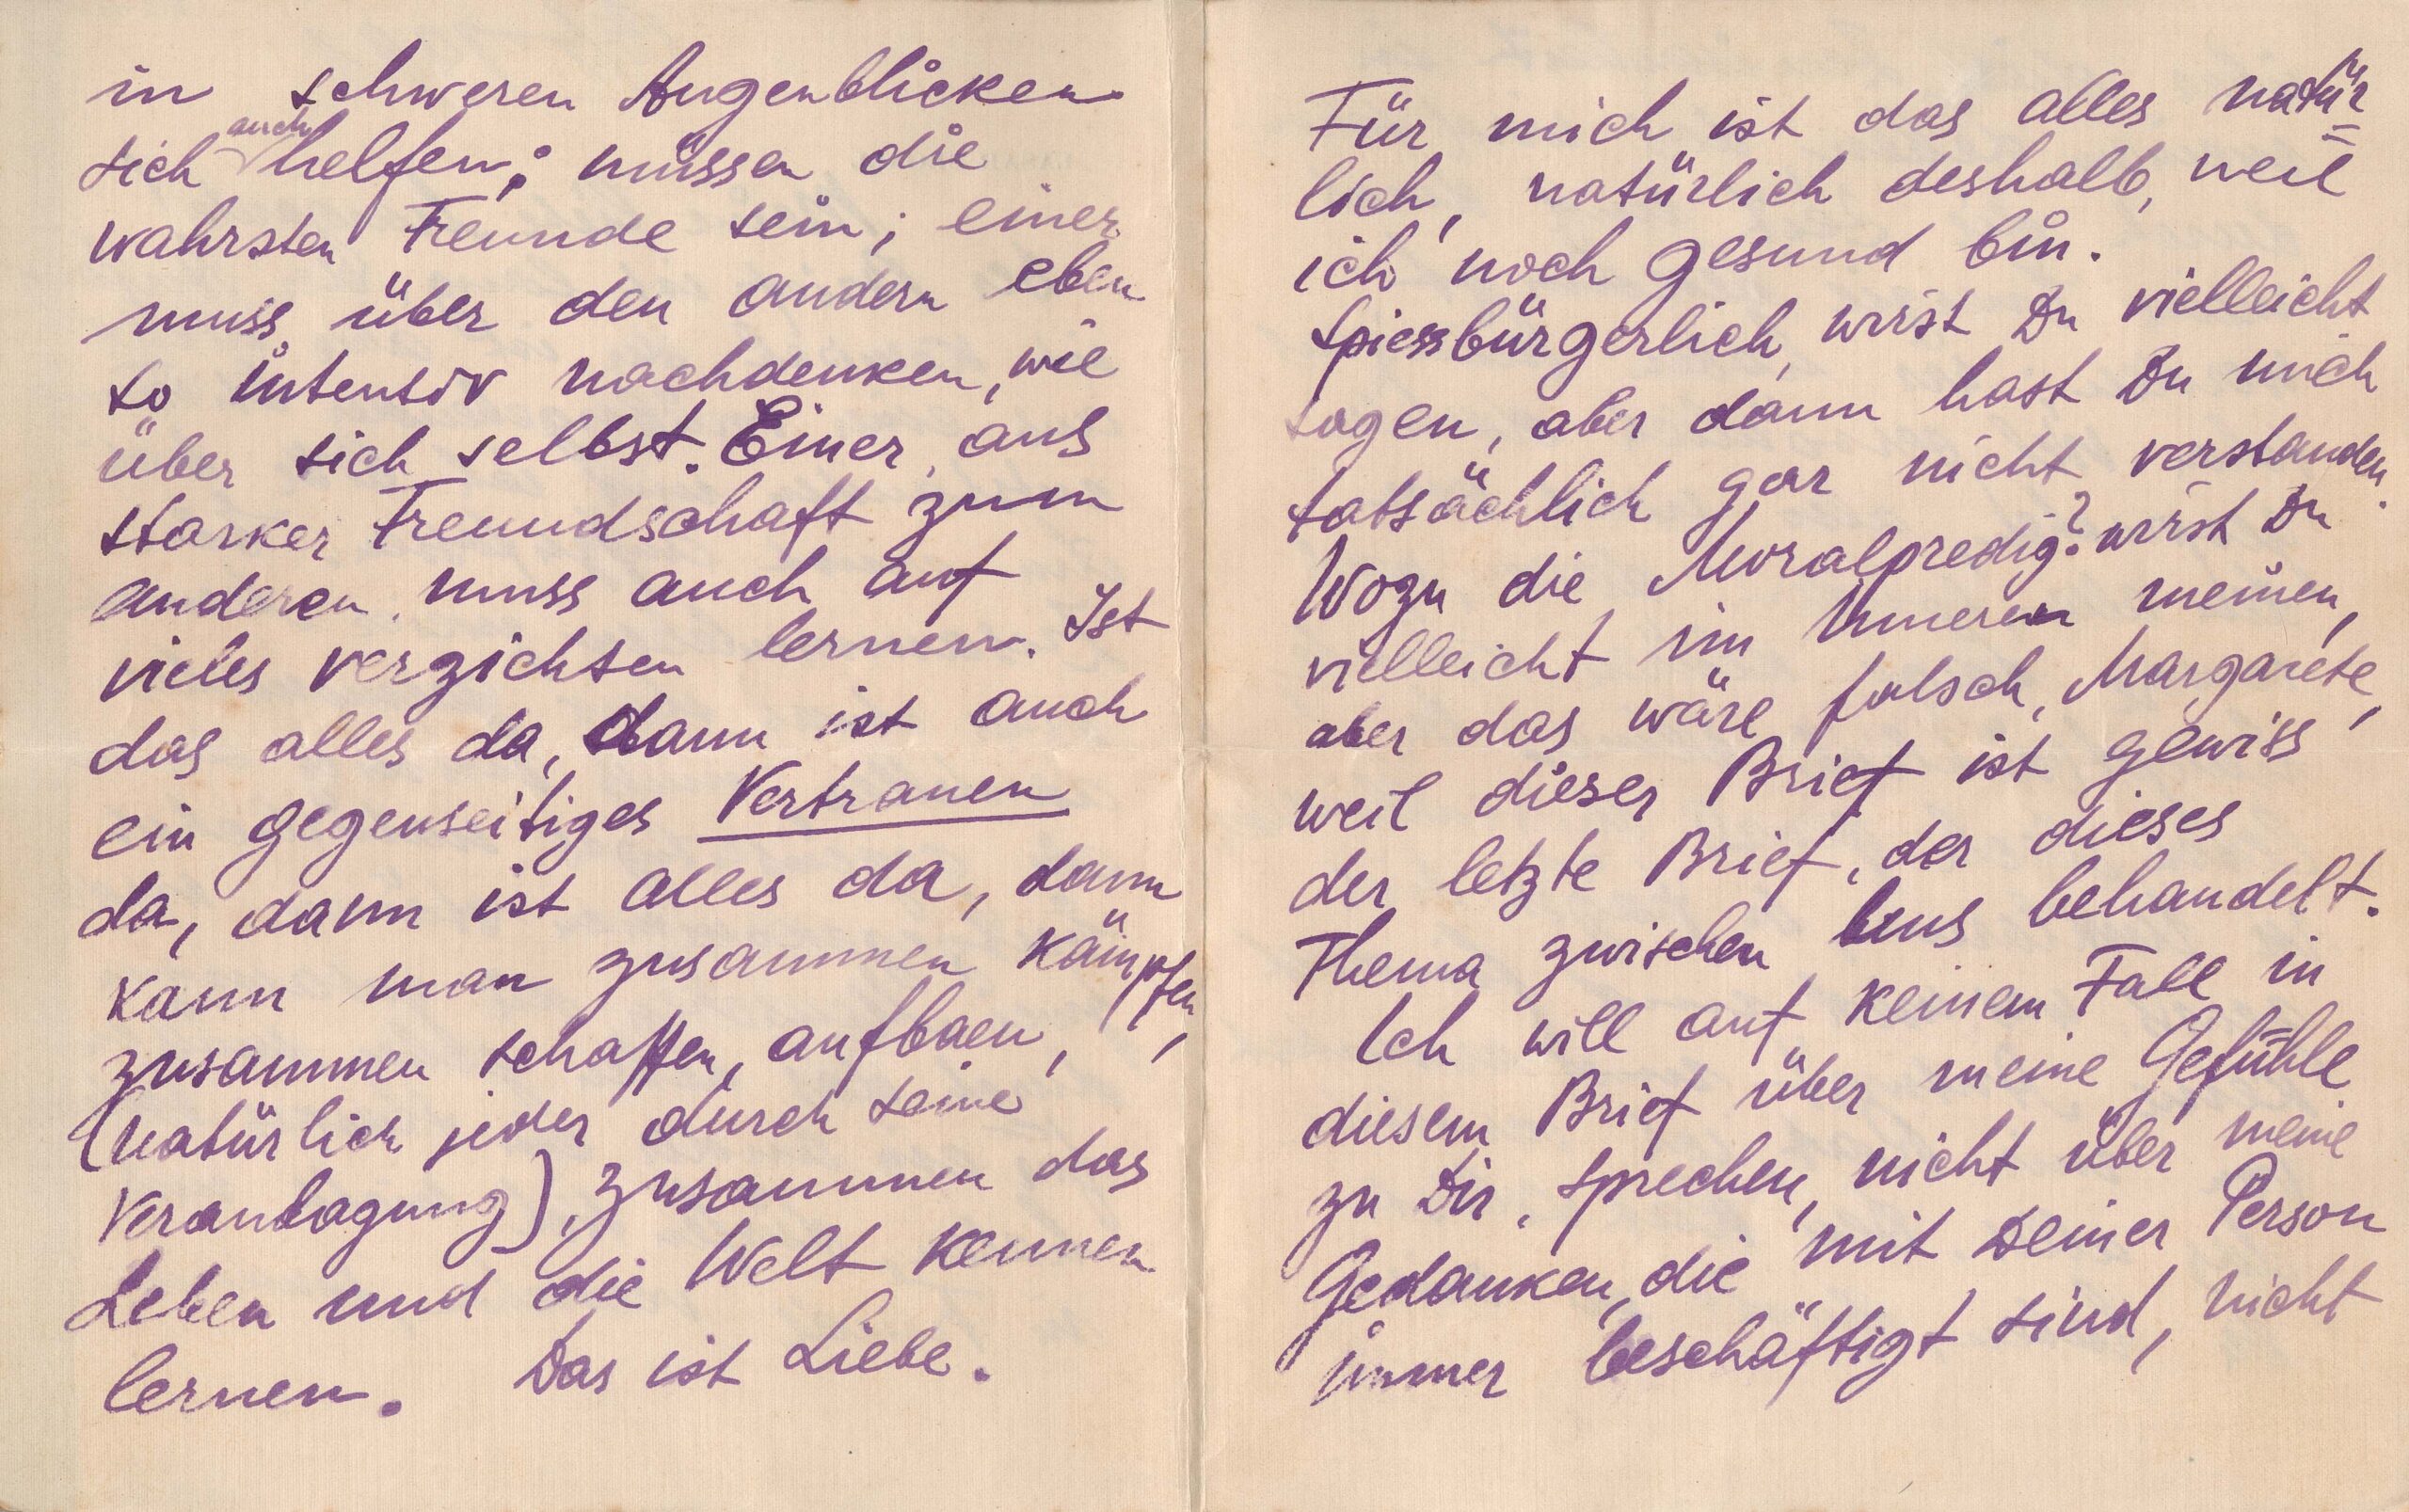 in schweren Augenblicken
sich auch helfen; müssen die
wahrsten Freunde sein; einer
muss über den andern eben
so intensiv nachdenken, wie
über sich selbst. Einer, aus
starker Freundschaft zum
anderen, muss auch auf
vieles verzichten lernen. Ist
das alles da, dann ist auch
ein gegenseitiges Vertrauen
da, dann ist alles da, dann
kann man zusammen kämpfen,
zusammen schaffen, aufbaen,
(natürlich jeder durch seine
Veranlagung), zusammen das
Leben und die Welt kennen
lernen. Das ist Liebe.
Für mich ist das alles natür=
lich, natürlich deshalb, weil
ich noch gesund bin.
Spiessbürgerlich, wirst Du vielleicht
sagen, aber dann hast Du mich
tatsächlich gar nicht verstanden.
Wozu die Moralpredig? wirst Du
vielleicht im Inneren meinen,
aber das wäre falsch, Margarete,
weil dieser Brief ist gewiss
der letzte Brief, der dieses
Thema zwischen uns behandelt.
Ich will auf keinem Fall in
diesem Brief über meine Gefühle
zu Dir, sprechen, nicht über meine
Gedanken, die mit Deiner Person
immer beschäftigt sind, nicht